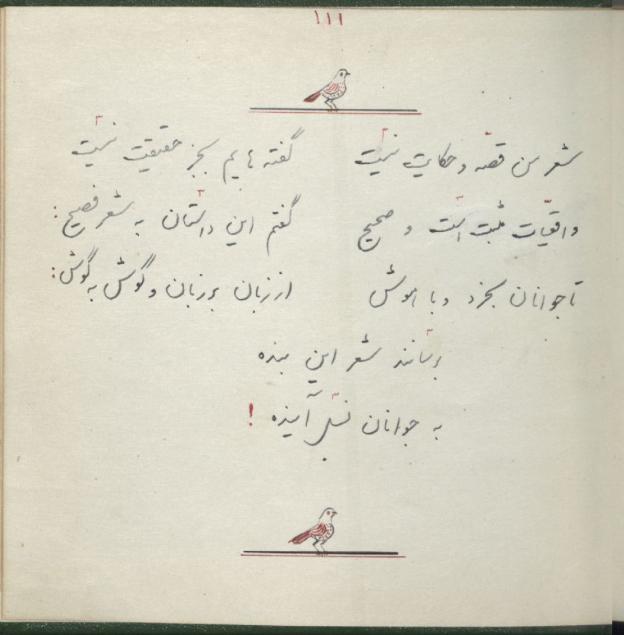 ۱۱۱
شعر من قصّه و حکایت نیست گفته هایم بجز حقیقت نیست
واقعیّات مثبت است و صحیح گفتم این داستان به شعر فصیح:
تا جوانان بخرد و با هوش از زبان بر زبان و گوش به گوش:
برسانند شعر این بنده
به جوانان نسل آینده!